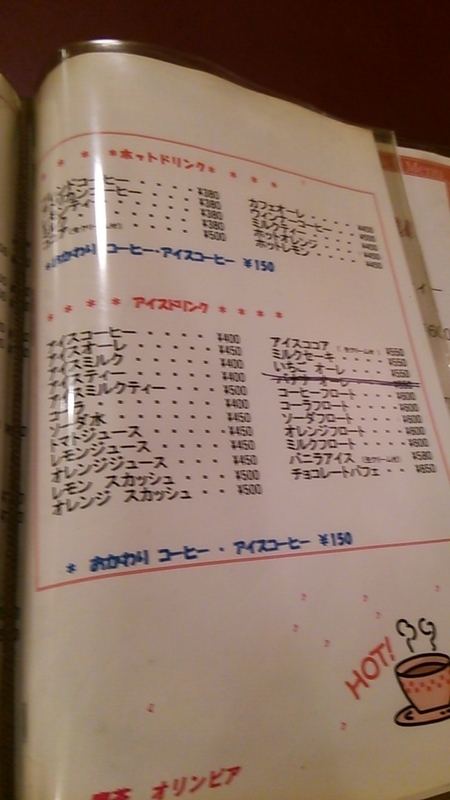 * * * *ホットドリンク* * * *
コーヒー ・・・・ ¥380
コーヒー ・・・・ ¥380
ティー ・・・・ ¥380
¥380
(生クリーム付) ・・・ ¥500
カフェオーレ ・・・ ¥450
ウインナーコーヒー ・・・ ¥450
ミルクティー ・・・ ¥450
ホットオレンジ ・・・ ¥450
ホットレモン ・・・ ¥450
*おかわり コーヒー・アイスコーヒー ¥150
* * * * アイスドリンク * * * *
アイスコーヒー ・・・・ ¥400
アイスオーレ ・・・・ ¥450
アイスミルク ・・・・ ¥400
アイスティー ・・・・ ¥400
アイスミルクティー ・・・ ¥500
コーラ ・・・・ ¥400
ソーダ水 ・・・・ ¥450
トマトジュース ・・・・ ¥450
レモンジュース ・・・・ ¥450
オレンジジュース ・・・ ¥450
レモン スカッシュ ・・ ¥500
オレンジ スカッシュ ・・ ¥500
アイスココア (生クリーム付) ¥550
ミルクセーキ ・・・ ¥550
いちご オーレ ・・・ ¥550
バナナ オーレ
コーヒーフロート ・・ ¥600
コーラフロート ・・・ ¥600
ソーダフロート ・・・ ¥600
オレンジフロート ・・ ¥600
ミルクフロート ・・・ ¥600
バニラアイス (生クリーム付) ¥580
チョコレートパフェ ・・ ¥650
* おかわり コーヒー ・ アイスコーヒー ¥150
HOT!
喫茶 オリンピア